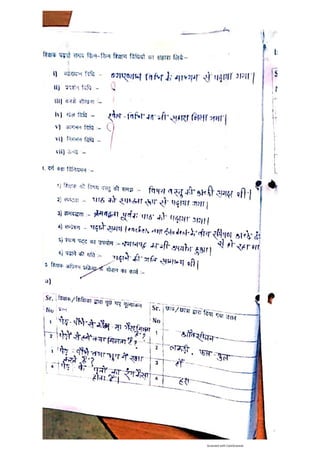 शिक्षक पढ़ाते समय किन-किन शिक्षण विधियों का सहारा लिये:-
i) व्याख्यान विधि - व्याख्यान विधि के माध्यम से पढ़ाया गया।
ii) प्रदर्शन विधि -
iii) करके सीखना -
iv) खेल विधि - खेल-विधि का भी सहारा लिया गया।
v) आगमन विधि -
vi) निगमन विधि -
vii) अन्य -
1. वर्ग कक्ष विनियमन -
1) शिक्षक की विषय वस्तु की समझ - विषय वस्तु की काफी समझ थी।
2) स्पष्टता - पाठ को स्पष्टता से पढ़ाया गया।
3) क्रमबद्धता - क्रमबद्धता पूर्वक पाठ को पढ़ाया गया।
4) सम्प्रेषण - पढ़ाते समय
5) श्याम पट्ट का उपयोग - श्यामपट्ट का भी उपयोग हुआ।
6) पढ़ाने की गति - पढ़ाने की गति सामान्य थी।
2. शिक्षक अधिगम प्रक्रिया के दौरान का कार्य:-
अ)
Sr. No शिक्षक/शिक्षिका द्वारा पूछे गए मूल्यांकन प्रश्न Sr. No छात्र/छात्रा द्वारा दिया गया उत्तर
1 पेड़-पौधे से कौन सा गैस मिलता है? 1 ऑक्सीजन
2 पौधों से हमें क्या मिलता है? 2 लकड़ी, फल फूल
3 पेड़-पौधे क्या 3 हाँ
4 पेड़ के पत्तों का रंग कैसा होता है? 4 हरा